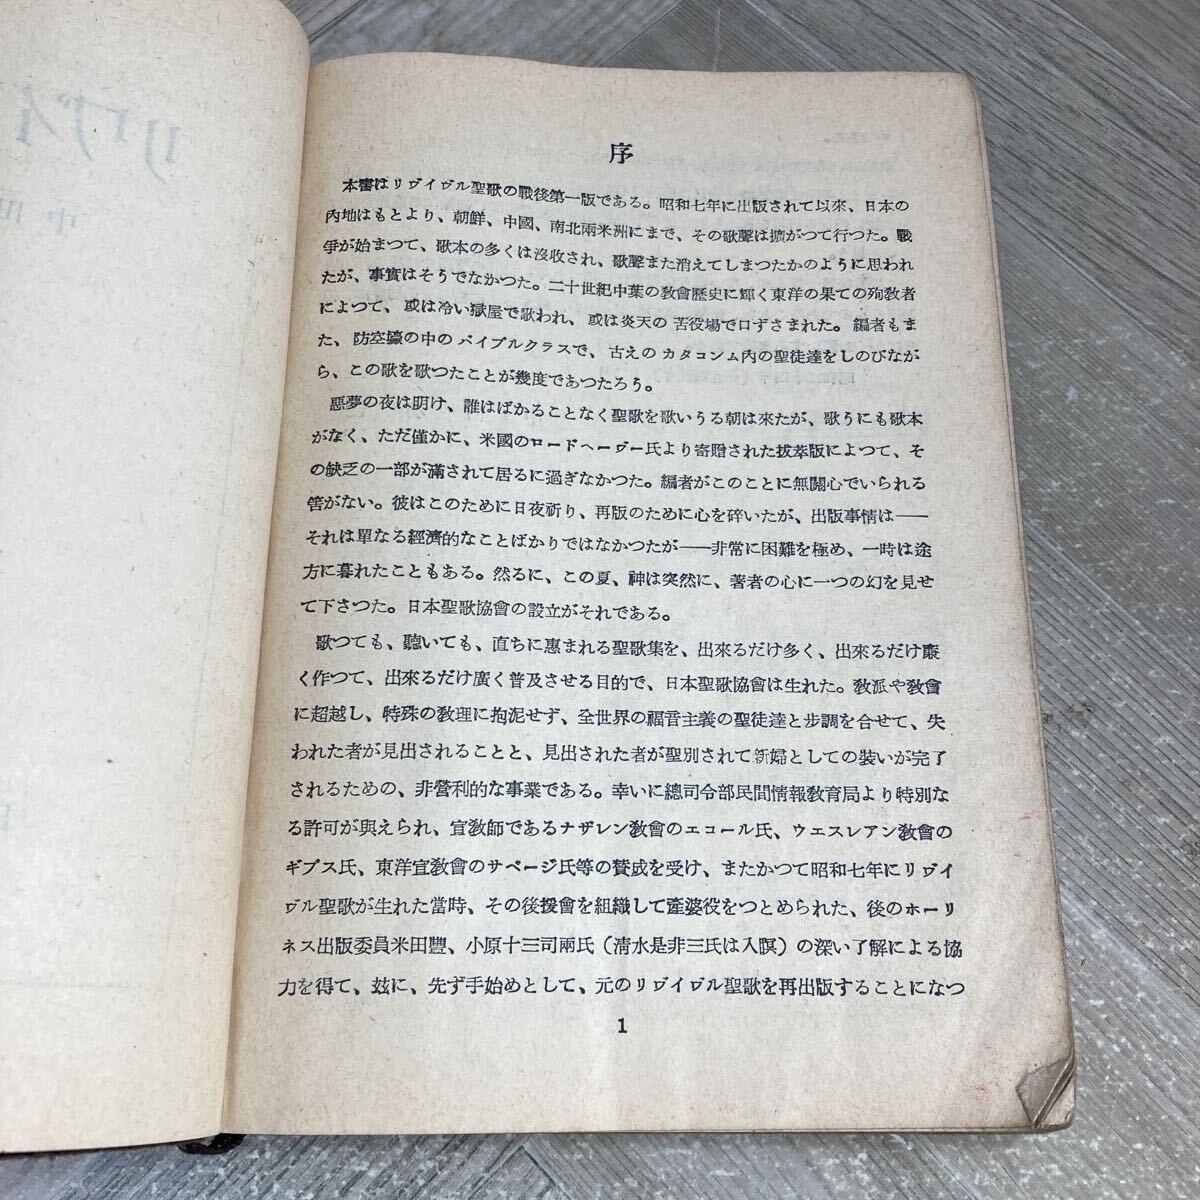 序
本書はリヴイヴル聖歌の戰後第一版である。昭和七年に出版されて以來、日本の
內地はもとより、朝鮮、中國、南北兩米洲にまで、その歌聲は擴がつて行つた。戰
爭が始まつて、歌本の多くは沒收され、歌聲また消えてしまつたかのように思われ
たが、事實はそうでなかつた。二十世紀中葉の敎會歷史に輝く東洋の果ての殉敎者
によつて、或は冷い獄屋で歌われ、或は炎天の苦役場で口ずさまれた。編者もま
た、防空壕の中のバイブルクラスで、古えのカタコンム內の聖徒達をしのびなが
ら、この歌を歌つたことが幾度であつたろう。
惡夢の夜は明け、誰はばかることなく聖歌を歌いうる朝は來たが、歌うにも歌本
がなく、ただ僅かに、米國のロードヘーヴー氏より寄贈された拔萃版によつて、そ
の缺乏の一部が滿されて居るに過ぎなかつた。編者がこのことに無關心でいられる
筈がない。彼はこのために日夜祈り、再版のために心を碎いたが、出版事情は――
それは單なる經濟的なことばかりではなかつたが――非常に困難を極め、一時は途
方に暮れたこともある。然るに、この夏、神は突然に、著者の心に一つの幻を見せ
て下さつた。日本聖歌協會の設立がそれである。
歌つても、聽いても、直ちに惠まれる聖歌集を、出來るだけ多く、出來るだけ叢
く作つて、出來るだけ廣く普及させる目的で、日本聖歌協會は生れた。敎派や敎會
に超越し、特殊の敎理に拘泥せず、全世界の福音主義の聖徒達と步調を合せて、失
われた者が見出されることと、見出された者が聖別されて新婦としての裝いが完了
されるための、非營利的な事業である。幸いに總司令部民間情報敎育局より特別な
る許可が與えられ、宣敎師であるナザレン敎會のエコール氏、ウエスレアン敎會の
ギプス氏、東洋宣敎會のサベージ氏等の贊成を受け、またかつて昭和七年にリヴイ
ヴル聖歌が生れた當時、その後援會を組織して產婆役をつとめられた、後のホーリ
ネス出版委員米田豐、小原十三司兩氏（淸水是非三氏は入瞑）の深い了解による協
力を得て、玆に、先ず手始めとして、元のリヴイヴル聖歌を再出版することになつ
1
リヴイ
中田